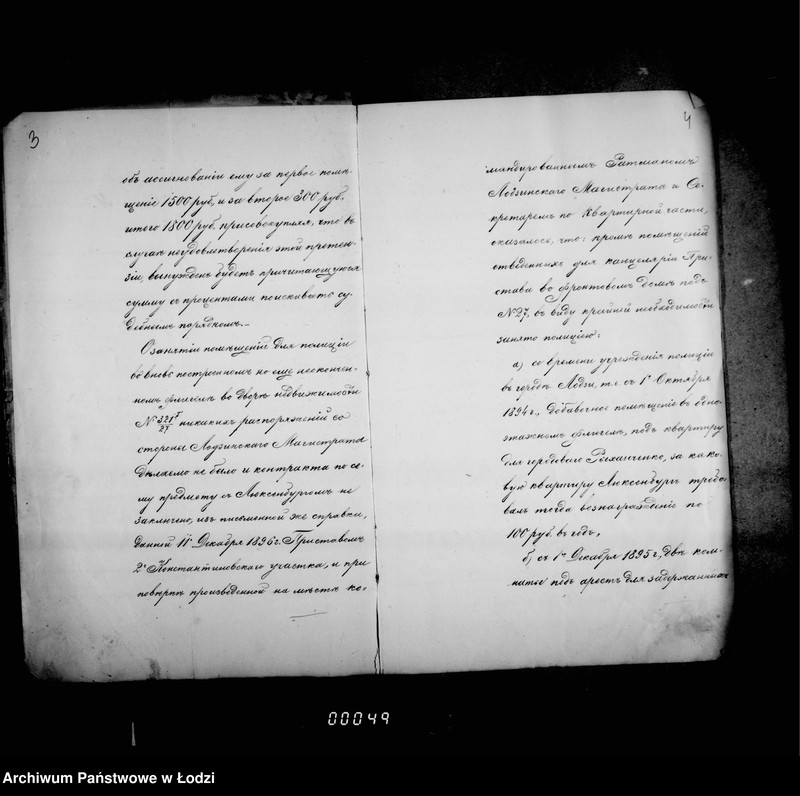 3
объ ассигнованіи ему за первое помѣ-
щеніе 1500 руб. и за второе 300 руб.,
итого 1800 руб. присовокупляя, что въ
случаѣ неудовлетворенія этой претен-
зіи, вынужденъ будетъ причитающуюся
сумму съ процентами поискивать су-
дебнымъ порядкомъ.—
О занятіи помѣщеній для полиціи
во вновь построенномъ но еще неокончен-
номъ флигелѣ во дворѣ недвижимости
№ 321/27 никакихъ распоряженій со
стороны Лодзинскаго Магистрата
дѣлаемо не было и контракта по се-
му предмету съ Люксенбургомъ не
заключено, изъ письменной же справки,
данной 11 Декабря 1896 г. Приставомъ
2 Константиновскаго участка, и при
повѣркѣ произведенной на мѣстѣ ко-
4
мандированнымъ Ратманомъ
Лодзинскаго Магистрата и Се-
кретаремъ по Квартирной части,
оказалось, что: кромѣ помѣщеній
отведенныхъ для канцеляріи При-
става во фронтовомъ домѣ подъ
№ 27, въ виду крайней необходимости
занято полиціею:
а) со времени учрежденія полиціи
въ городѣ Лодзи, т. е. съ 1 Октября
1894 г., добавочное помѣщеніе въ
этажномъ флигелѣ, подъ квартиру
для городоваго за како-
вую квартиру Люксенбургъ требо-
валъ тогда вознагражденіе по
100 руб. въ годъ,
б) съ 1 Декабря 1895 г., двѣ ком-
наты подъ арестъ для задержанныхъ
00049
Archiwum Państwowe w Łodzi